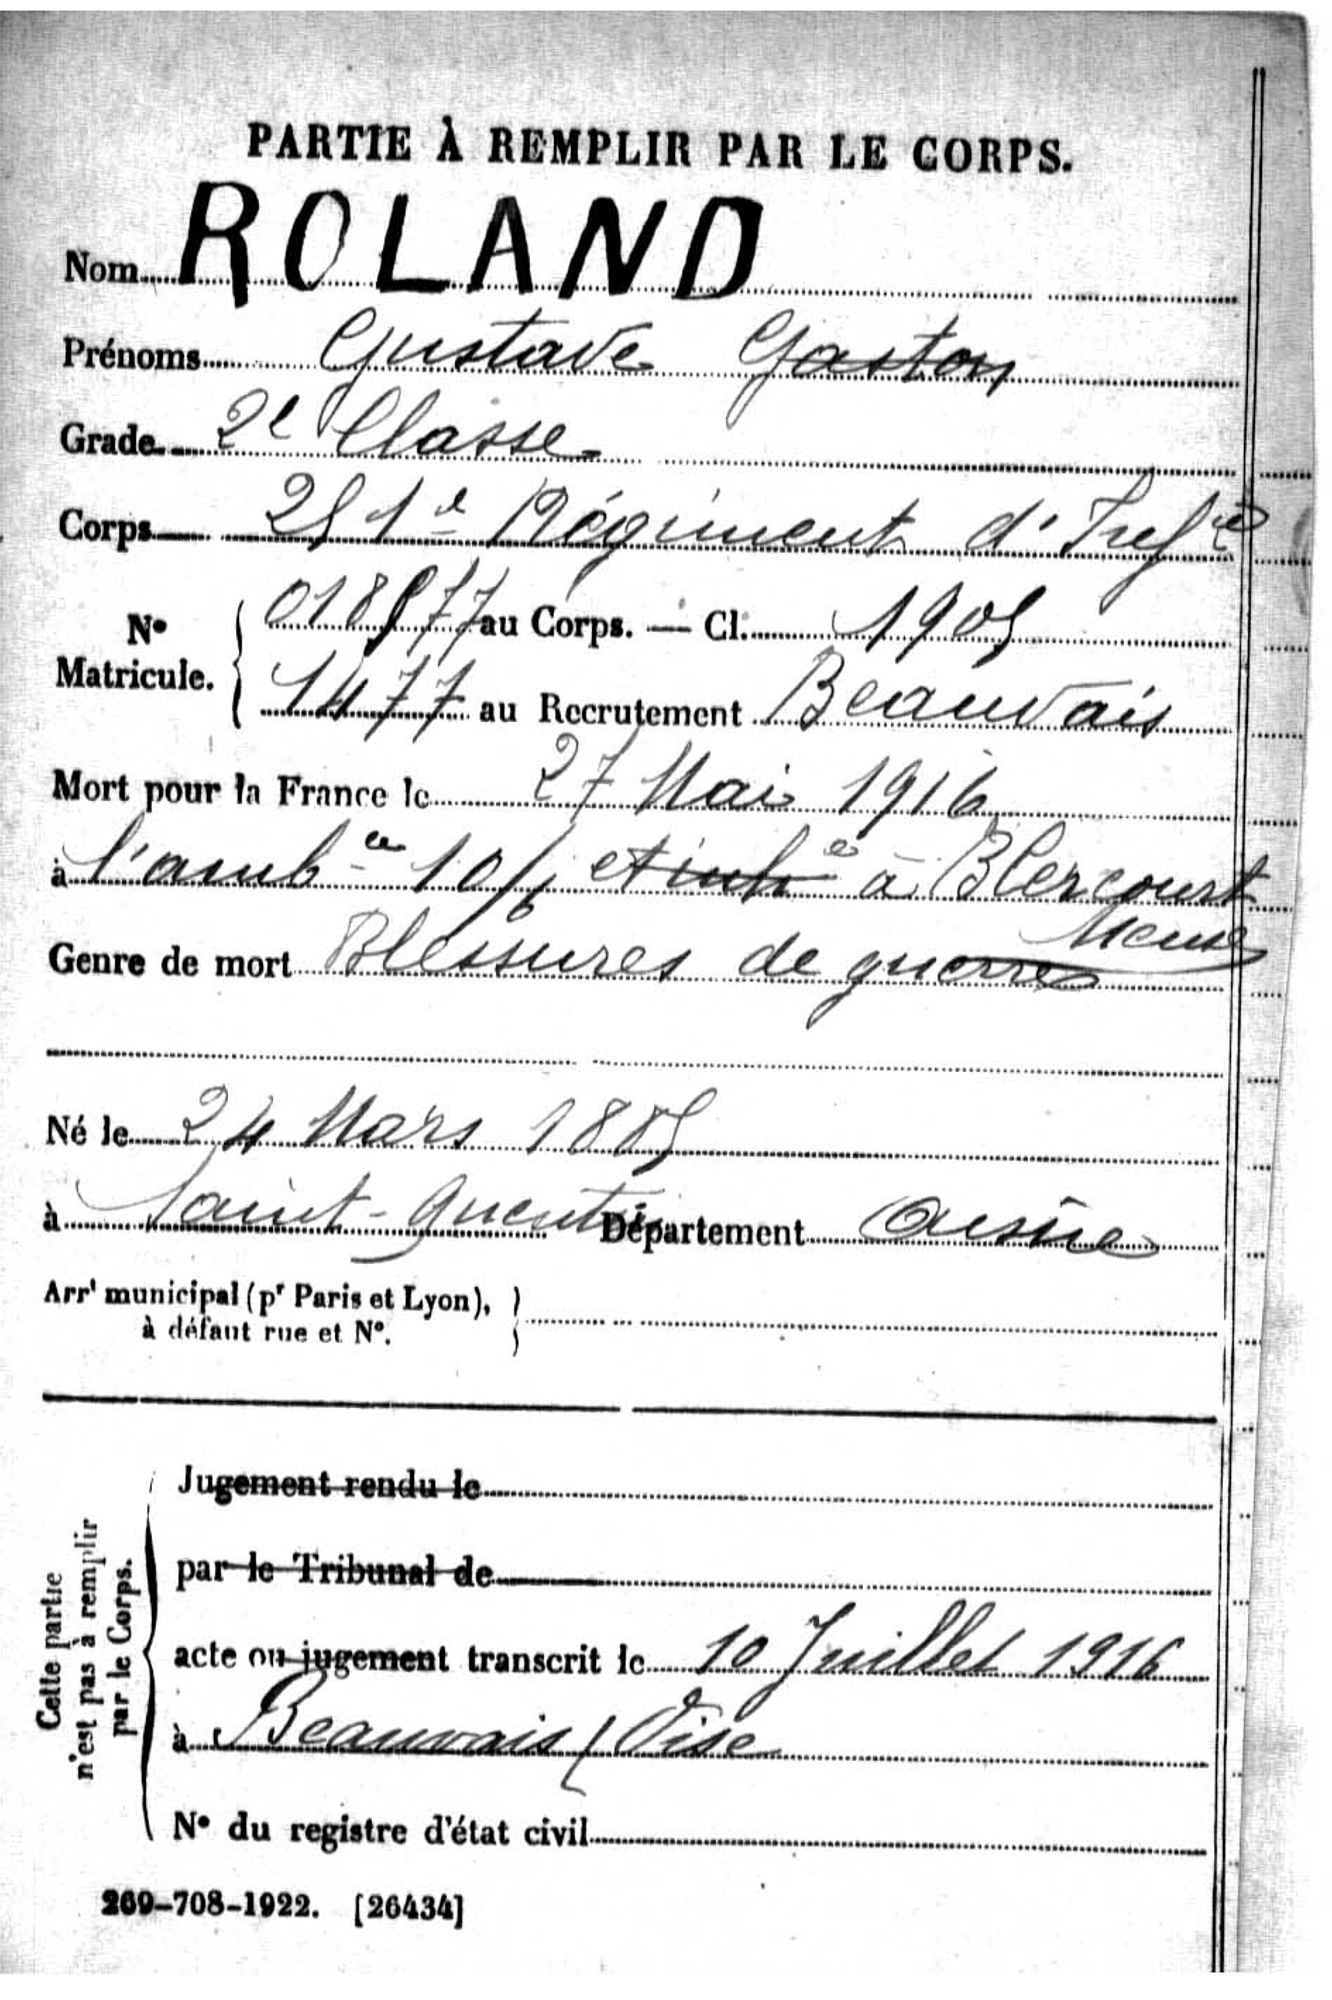 PARTIE À REMPLIR PAR LE CORPS.
Nom ROLAND
Prénoms Gustave Gaston
Grade 2e Classe
Corps 251e Régiment d'Infie
No Matricule. 018577 au Corps. — Cl. 1905
1477 au Recrutement Beauvais
Mort pour la France le 27 Mai 1916
à l'ambce à Blercourt
Meuse
Genre de mort Blessures de guerre
Né le 24 Mars 1885
à Saint-Quentin Département Aisne
Arrt municipal (pr Paris et Lyon),
à défaut rue et No.
Cette partie
n'est pas à remplir
par le Corps.
Jugement rendu le
par le Tribunal de
acte ou jugement transcrit le 10 Juillet 1916
à Beauvais (Oise
No du registre d'état civil
269-708-1922. [26434]